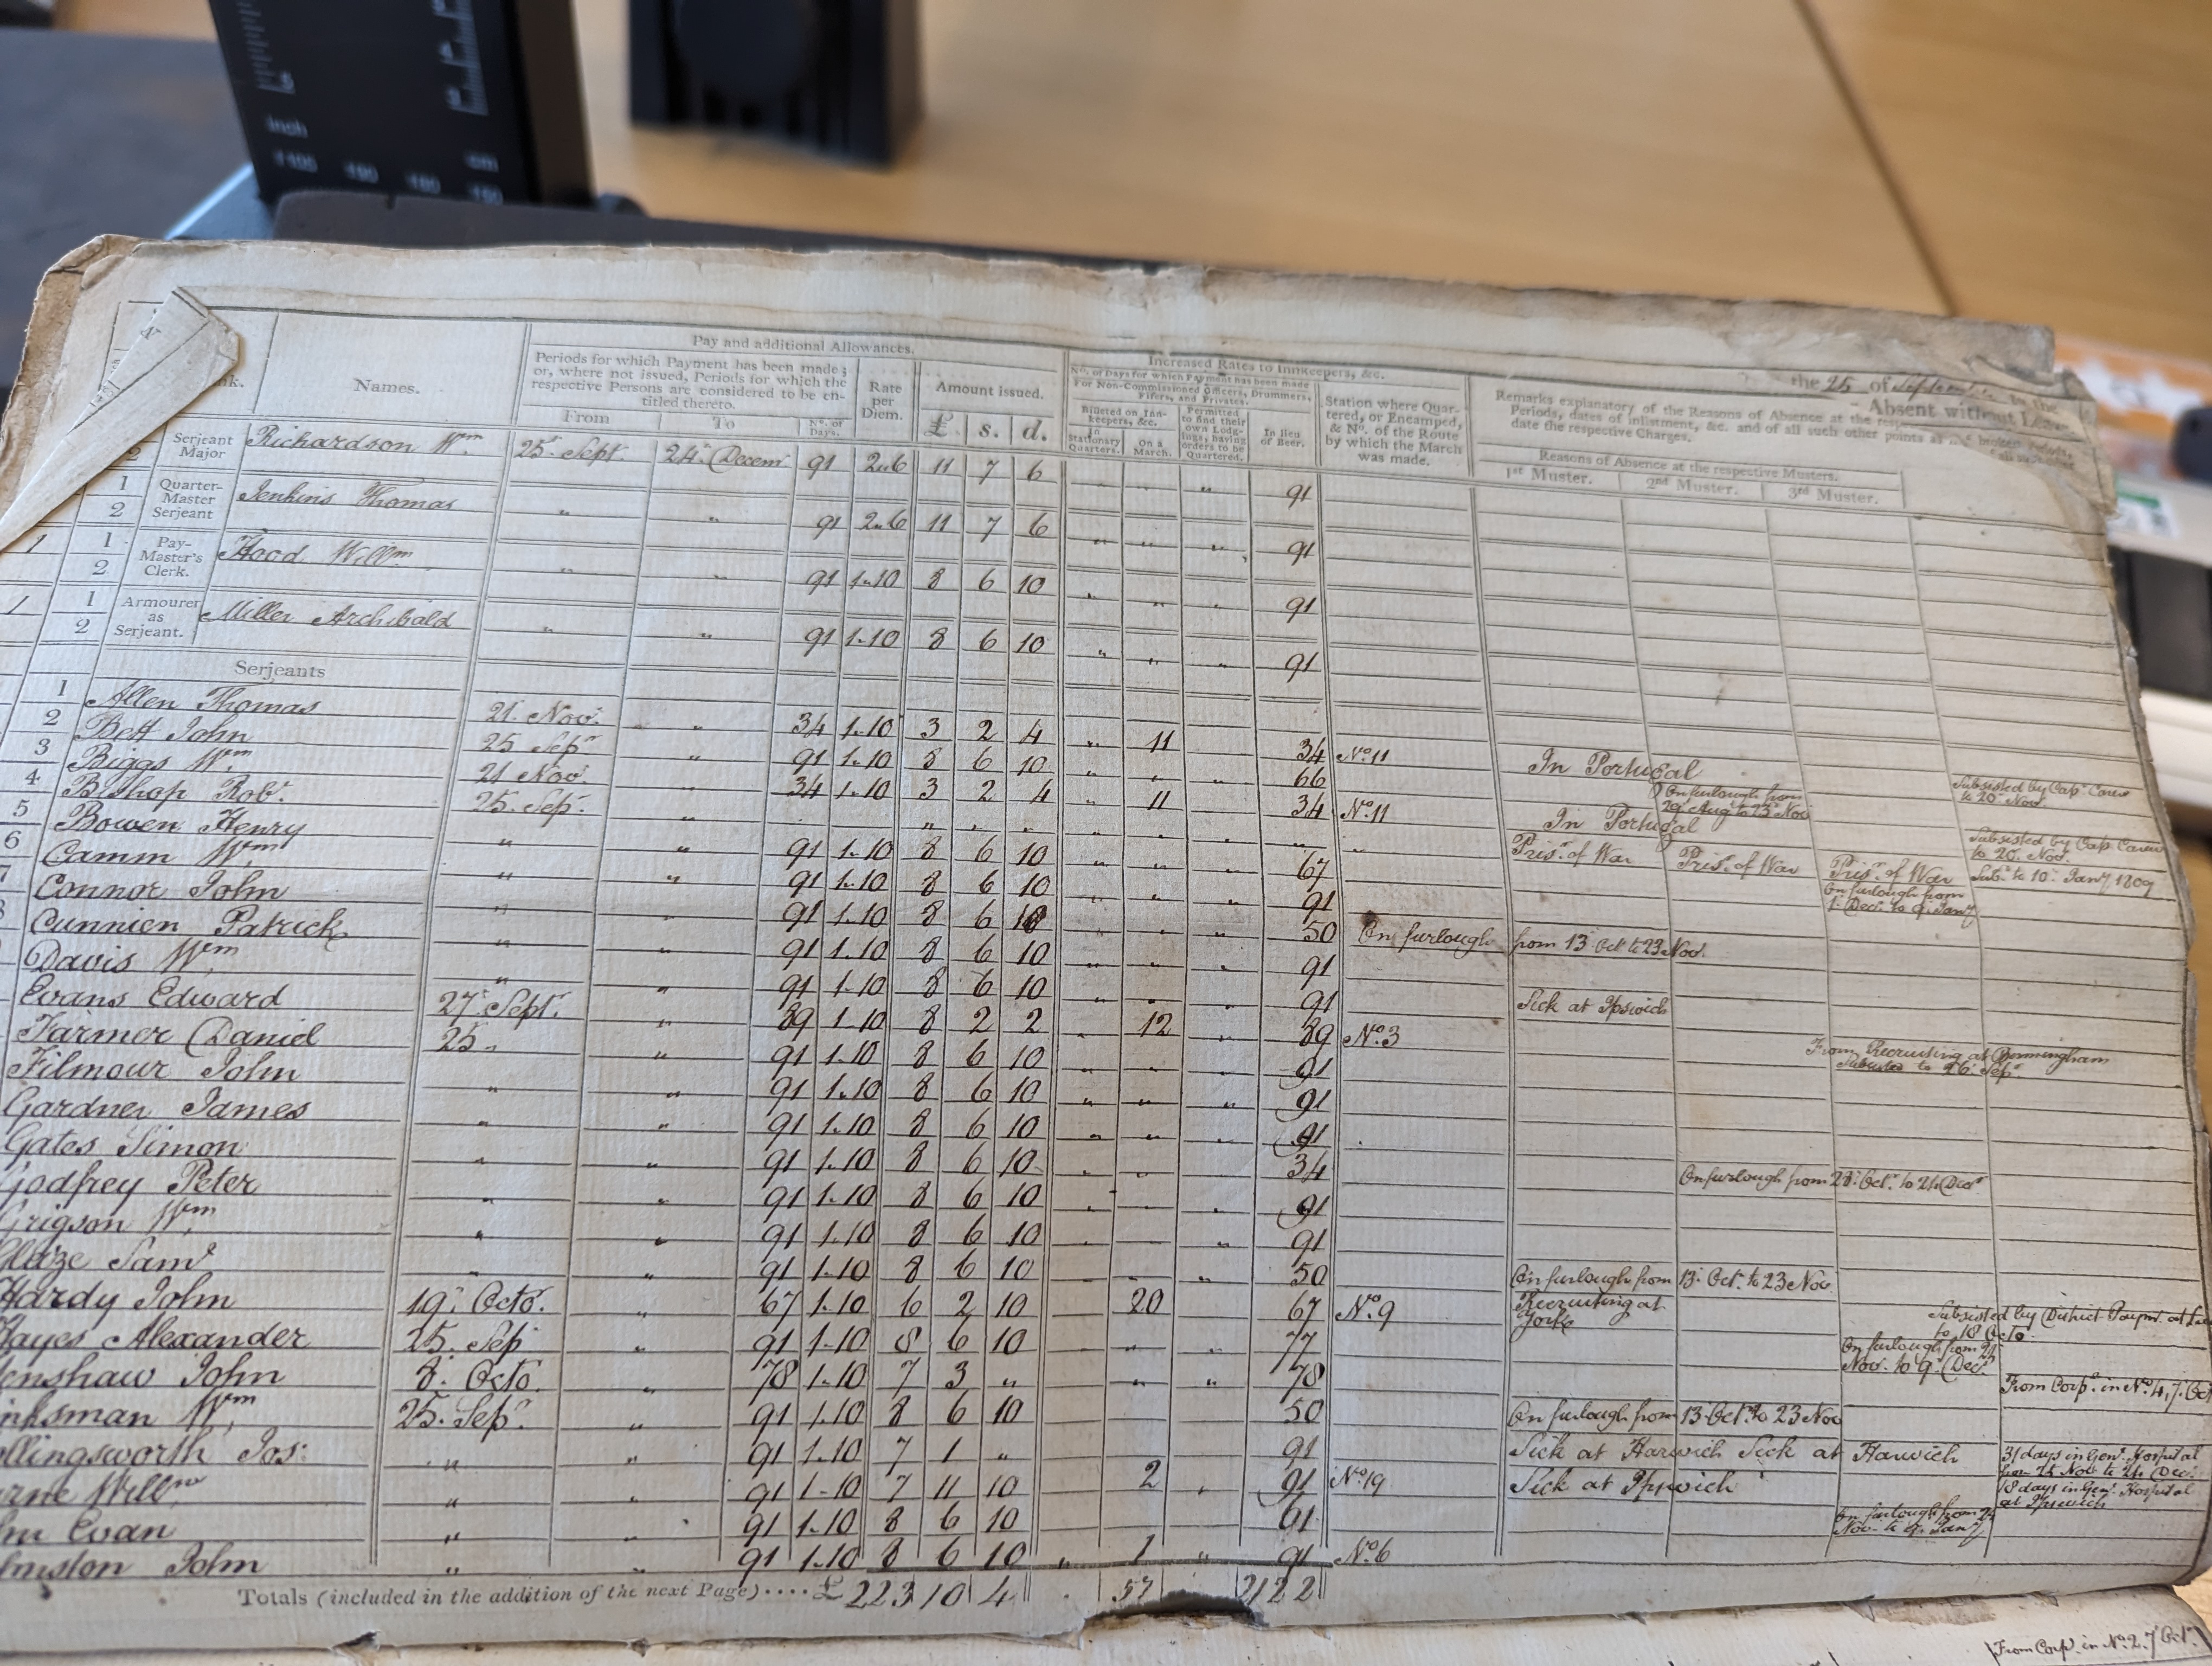 inch
190
180
Pay and additional Allowances.
Increased Rates to Innkeepers, &c.
the 25 of September
Absent without Leave
Names.
Periods for which Payment has been made; or, where not issued, Periods for which the respective Persons are considered to be entitled thereto.
From To N.º of Days.
Rate per Diem.
Amount issued.
£ s. d.
N.º of Days for which Payment has been made For Non-Commissioned Officers, Drummers, Fifers, and Privates.
Billeted on Innkeepers, &c.
In Stationary Quarters. On a March.
Permitted to find their own Lodgings, having orders to be Quartered.
In lieu of Beer.
Station where Quartered, or Encamped, & Nº. of the Route by which the March was made.
Remarks explanatory of the Reasons of Absence at the
Periods, dates of inlistment, &c. and of all such other points as
date the respective Charges.
Reasons of Absence at the respective Musters.
1st Muster. 2nd Muster. 3rd Muster.
2 Serjeant Major Richardson Wm. 25. Sept. 24. Decem 91 2..6 11 7 6 " 91
1 2 Quarter-Master Serjeant Jenkins Thomas " " 91 2..6 11 7 6 " " " 91
1 1 2 Pay-Master's Clerk. Hood Willm " " 91 1..10 8 6 10 " " " 91
1 1 2 Armourer as Serjeant. Miller Archibald " " 91 1..10 8 6 10 " " " 91
Serjeants
1 Allen Thomas 21. Nov. " 34 1..10 3 2 4 " 11 34 No. 11 In Portugal Subsisted by Capt. to 20 Nov.
2 Bett John 25 Sepr " 91 1..10 8 6 10 " " " 66 On furlough from 29 Aug to 23 Nov
3 Biggs Wm. 21 Nov. " 34 1..10 3 2 4 " 11 34 No. 11 In Portugal Subsisted by Capt. to 20. Nov.
4 Bishop Robt. 25. Sep. " " " " Pris.r of War Pris.r of War Pris.r of War Subd. to 10. Jany 1809
5 Bowen Henry " " 91 1..10 8 6 10 " " " 67 On furlough from 1. Dec. to 9. Jany
6 Camm Wm. " " 91 1..10 8 6 10 " " " 91
7 Connor John " " 91 1..10 8 6 10 " " " 50 On furlough from 13 Oct to 23 Nov.
8 Cunnien Patrick " " 91 1..10 8 6 10 " " " 91
Davis Wm. " " 91 1..10 8 6 10 " " " 91 Sick at Ipswich
Evans Edward 27. Sept. " 89 1..10 8 2 2 " 12 " 89 No. 3 From Recruiting at Birmingham Subsisted to 26. Sepr.
Farmer Daniel 25 " " 91 1..10 8 6 10 91
Filmour John " " 91 1..10 8 6 10 " " " 91
Gardner James " " 91 1..10 8 6 10 " " 91
Gates Simon " " 91 1..10 8 6 10 " " 34 On furlough from 28. Oct. to 24 Decr
Godfrey Peter " " 91 1..10 8 6 10 " " " 91
Grigson Wm. " " 91 1..10 8 6 10 " " " 91
Glaze Saml " " 91 1..10 8 6 10 " " " 50 On furlough from 13. Oct. to 23 Nov
Hardy John 19. Octo. " 67 1..10 6 2 10 20 67 No. 9 Recruiting at York Subsisted by District Paymr. at to 18 Octo.
Hayes Alexander 25. Sep " 91 1..10 8 6 10 " " " 77 On furlough from 24 Nov. to 9. Dec.
enshaw John 8. Octo. " 78 1..10 7 3 " " " 78 From Corpl. in No. 4, 7. Oct
nksman Wm. 25. Sepr. " 91 1..10 8 6 10 50 On furlough from 13 Oct. to 23 Nov
llingsworth Jos: " " 91 1..10 7 1 " 91 Sick at Harwich Sick at Harwich 31 days in Genl. Hospital from 25 Nov to 24 Dec.
rne Willm " " 91 1..10 7 11 10 2 " 91 No. 19 Sick at Ipswich 18 days in Genl. Hospital at Ipswich
Evan " " 91 1..10 8 6 10 91 On furlough from 24 Nov. to 9. Jany
lmston John " " 91 1..10 8 6 10 " 1 " 91 No. 6
Totals (included in the addition of the next Page) .... £ 223 10 4 57 2122
From Corpl. in No. 2. 7 Oct.